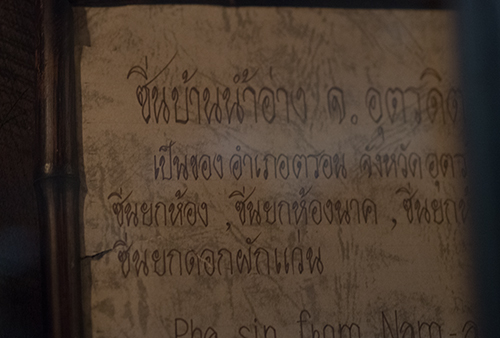 ซิ่นบ้านน้ำอ่าง จ. อุตรดิต
เป็นของ อำเภอตรอน จังหวัด อุตร
ซิ่นยกห้อง , ซิ่นยกห้องนาค , ซิ่นยก
ซิ่นยกดอกผักแว่น
Pha sin from Nam-a